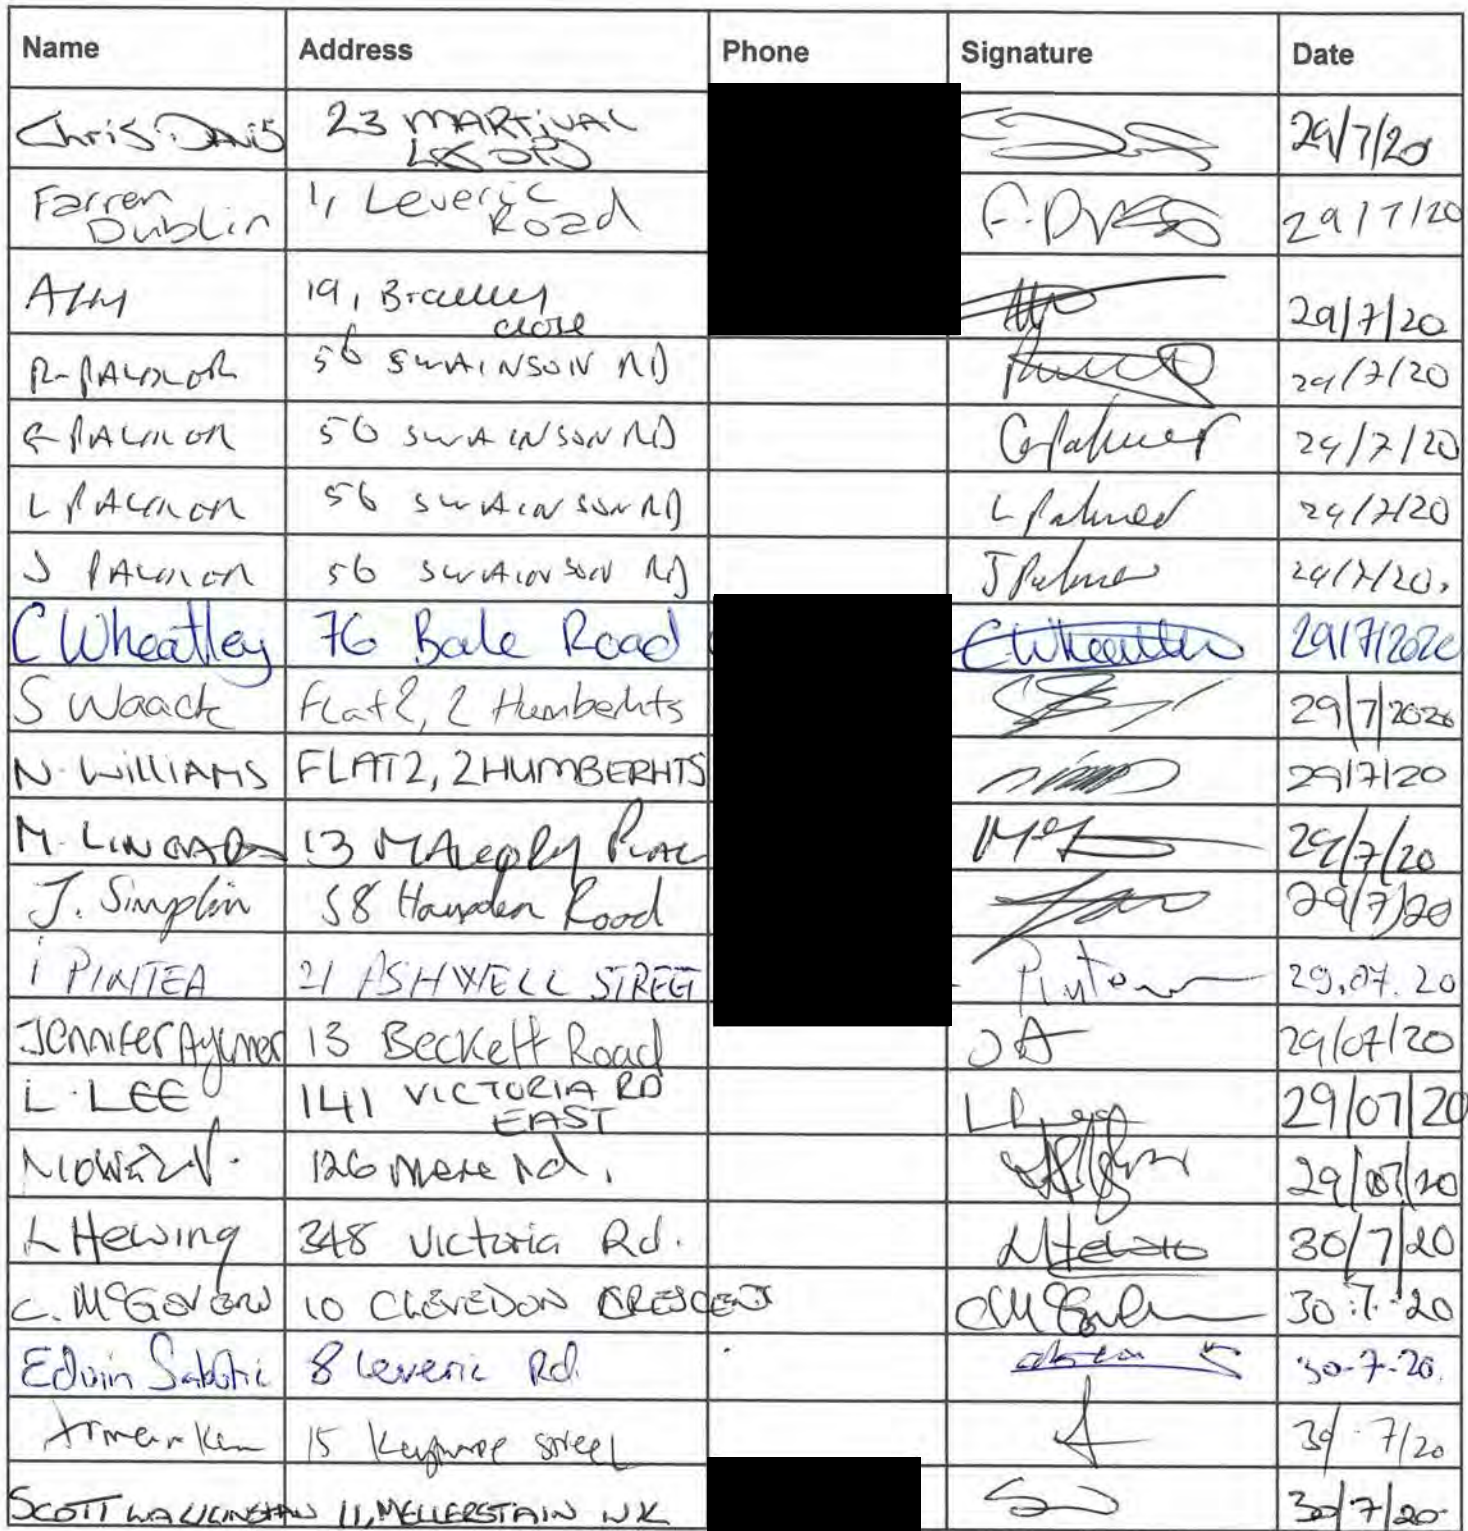 Name Address Phone Signature Date
Chris Davis 23 MARTIVAL 29/7/20
Farren Dublin 1, Leveric Road 29/7/20
19, close 29/7/20
R PALMER 56 SWAINSON RD 29/7/20
G PALMER 56 SWAINSON RD G Palmer 29/7/20
L PALMER 56 SWAINSON RD L Palmer 29/7/20
J PALMER 56 SWAINSON RD J Palmer 29/7/20.
C Wheatley 76 Bale Road C Wheatley 29/7/2020
S Waack Flat 2, 2 Humberhts 29/7/2020
N. WILLIAMS FLAT 2, 2 HUMBERHTS 29/7/20
M. LINGARD 13 29/7/20
J. Simplin 58 Hampden Road 29/7/20
I PINTEA 21 ASHWELL STREET Pintea 29.07.20
Jennifer Aylmer 13 Beckett Road JA 29/07/20
L. LEE 141 VICTORIA RD EAST L Lee 29/07/20
126 Mere Rd. 29/07/20
L Hewing 348 Victoria Rd. 30/7/20
C. McGovern 10 CLEVEDON CRESCENT 30.7.20
Edvin Sabotic 8 Leveric Rd. 30-7-20.
15 street 30/7/20
SCOTT 11, MELLERSTAIN WK 30/7/20